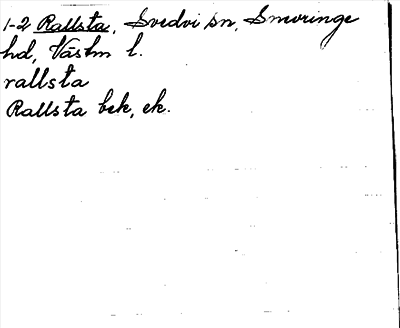 1-2 Rallsta, Svedvi sn, Snevringe
hd, Västm l.
rallsta
Rallsta bek, ek.